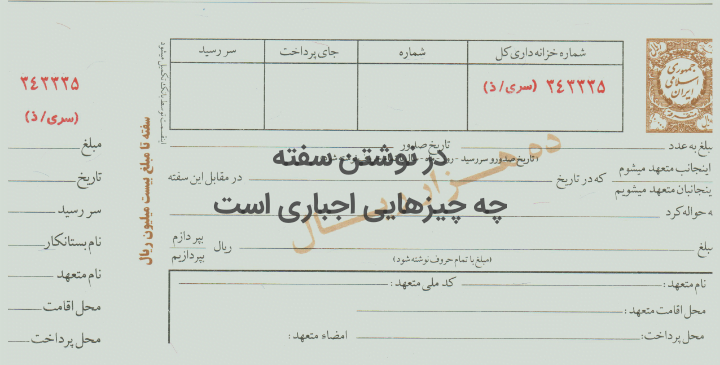 شماره خزانه داری کل
شماره
جای پرداخت
سر رسید
۳۴۲۳۳۵ (سری/ ذ)
جمهوری
اسلامی
ایران
ریال
مبلغ به عدد
تاریخ صدور
(تاریخ صدور و سر رسید
اینجانب متعهد میشوم
ینجانبان متعهد میشویم
که در تاریخ
در مقابل این سفته
ه حواله کرد
مبلغ
ریال
بپردازم
بپردازیم
(مبلغ با تمام حروف نوشته شود)
نام متعهد:
کد ملی متعهد:
محل اقامت متعهد:
محل پرداخت:
امضاء متعهد:
ده هزار ریال
در نوشتن سفته
چه چیزهایی اجباری است
سفته تا مبلغ بیست میلیون ریال
۳۴۲۳۳۵
(سری/ ذ)
مبلغ
تاریخ
سر رسید
نام بستانکار
نام متعهد
محل اقامت
محل پرداخت